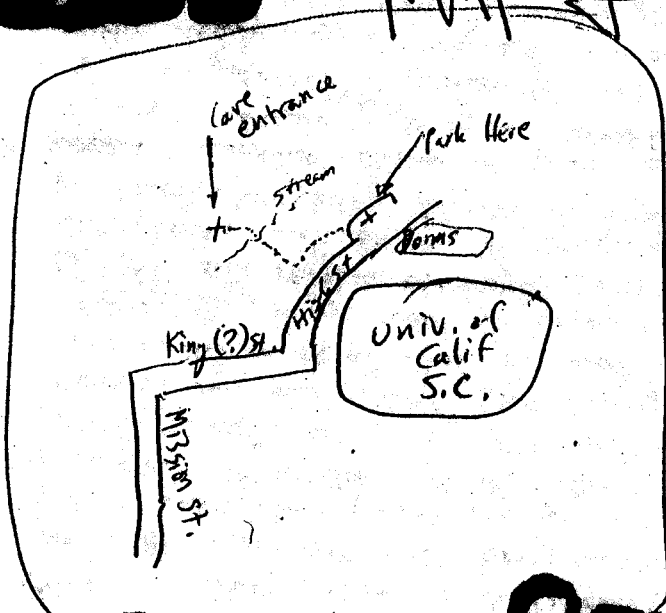 Cave
entrance
Park Here
stream
Dorms
High St
King (?) St.
Univ. of
Calif
S.C.
Mission St.